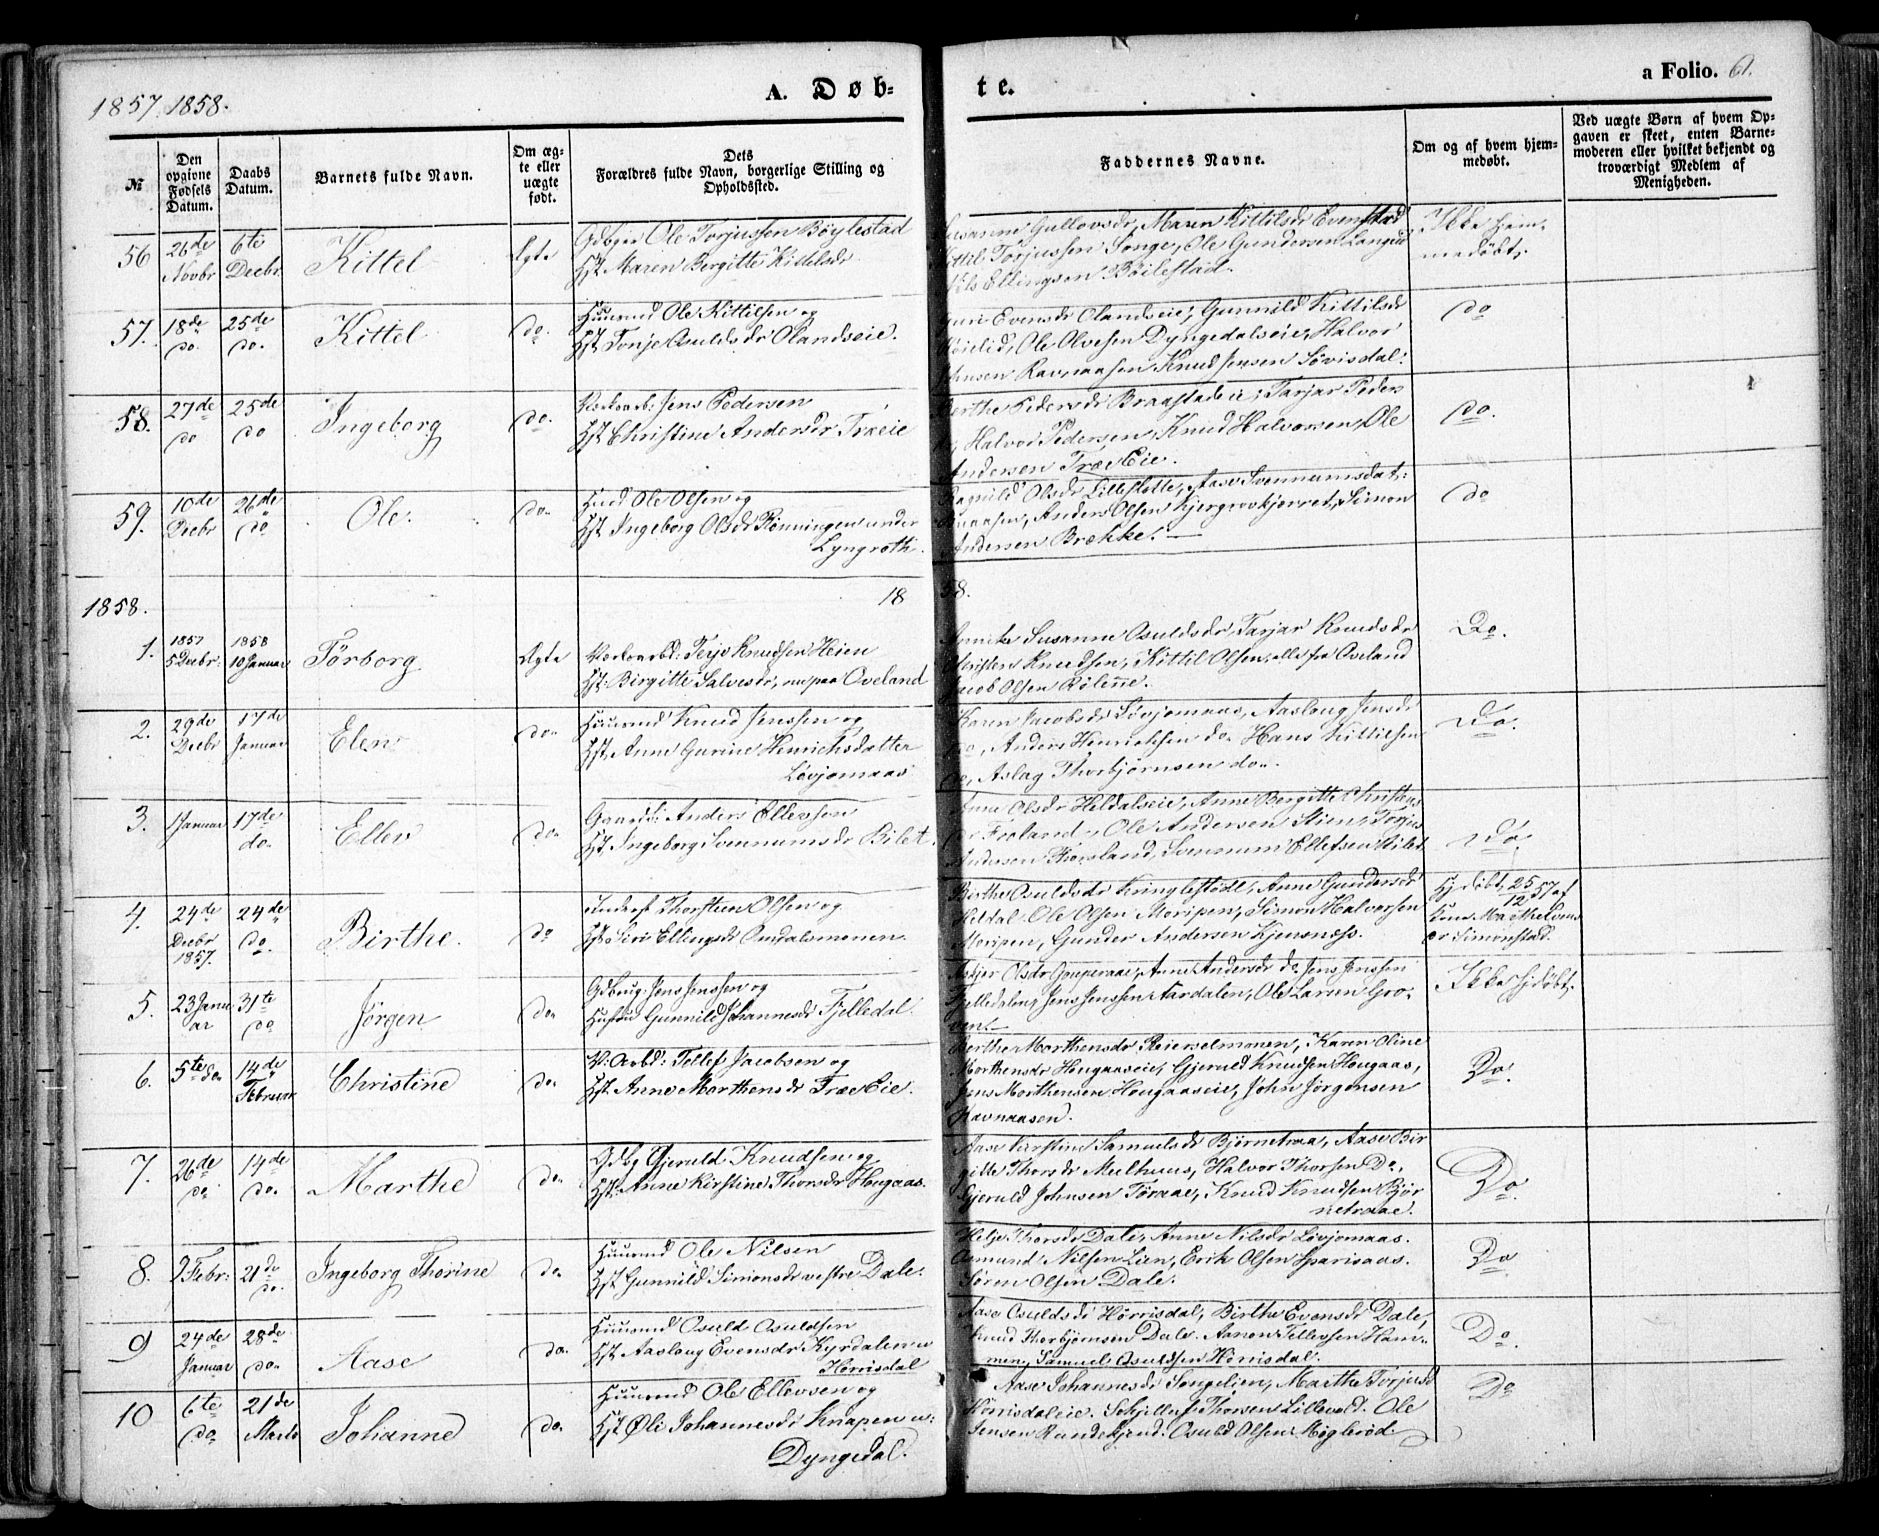 1857 1858.
A. Døb-
te.
a Folio. 61.
№
Den opgivne Fødsels Datum.
Daabs Datum.
Barnets fulde Navn.
Om ægte eller uægte født.
Dets Forældres fulde Navn, borgerlige Stilling og Opholdssted.
Faddernes Navne.
Om og af hvem hjemmedøbt.
Ved uægte Børn af hvem Opgaven er skeet, enten Barnemoderen eller hvilket bekjendt og troværdigt Medlem af Menigheden.
56
26de Novbr
6te Decbr
Kittel
Ægte
Gdbger Ole Torjussen Bøylestad
Hst Maren Bergitte Kittilsdr
Susanne Gullovsdr, Maren Kittilsdr Evenstad
Kittil Torjussen Songe, Ole Gundersen
Nils Ellingsen Böilestad.
Ikke hjem-
medøbt.
57.
18de do.
25de do.
Kittel
do.
Huusmd Ole Kittilsen og
Hst Tonje Osuldsdr Olandseie.
Evensdr Olandseie, Gunnild Kittilsdr
Ole Olvesen Dyngedalseie, Halvor
Johnsen Ravnaasen Knud Jensen Lövisdal.
do
58.
27de do
25de do
Ingeborg
do.
Jens Pedersen
Hst Christine Andersdr Træeie
Berthe Pedersdr Braastadeie, Tarjar Peders
dr, Halvor Pedersen, Knud Halvorsen, Ole
Andersen Træe Eie.
do.
59.
10de Decbr
26de do
Ole.
do.
Husmd. Ole Olsen og
Hst Ingeborg Olsdr Rønningen under
Lyngroth.
Ragnild Olsdr Lilleslotte, Aase Svennumsdat:
Anders Olsen Kjergrovkjerret, Simon
Andersen Brekke.
do
1858.
18
58.
1.
1857
5 Decbr.
1858
10 Januar
Törborg
Ægte
Terje Knudsen Heien
Hst: Birgitte Salvesdr, nu paa Oveland
Anneke Susanne Osuldsdr, Tarjar Knudsdr
Christen Knudsen, Kittil Olsen, alle fra Oveland
Jacob Olsen
Do.
2.
29de Decbr
17de Januar
Elen
do.
Huusmd Knud Jenssen og
Hst, Anne Gurine Henrichsdatter
Løvjomaas
Karen Jacobsdr Løvjomaas, Aaslaug Jensdr
do, Anders Henriksen do. Hans Kittilsen
do, Aslag Thorbjørnsen do.
Do.
3.
1 Januar
17de do.
Ellev
do.
Gaardb: Anders Ellevsen
Hst. Ingeborg Svennumsdr Bilet.
Anne Olsdr Heldalseie, Anne Bergitte Christens
dr Froland, Ole Andersen Stien, Torjus
Andersen Svennum Ellefsen Bilet
Do.
4.
24de Decbr 1857.
24de do.
Birthe.
do
Thorsten Olsen og
Hst Siri Ellingsdr Omdalsmonen.
Birthe Osuldsdr Kringlestölt, Anne Gundersdr
Heldal, Ole Olsen Moripen, Simon Halvorsen
Moripen, Gunder Andersen Kjensnæss.
Hj döbt, 25/12 57 af
Simonstad.
5.
23 Janu
ar
31te do
Jörgen
do.
Gdbrug. Jens Jenssen og
Hustru Gunnild Johannesdr Fjelledal.
Askjer Olsdr Anne Andersdr do. Jens Jenssen
Fjelledalen, Jens Jenssen Aardalen, Ole Larsen Gro-
ven.
Ikke hj döbt.
6.
5te do.
14de Februar
Christine
do.
V: Arbd: Tellef Jacobsen og
Hst. Anne Morthensdr Træe Eie.
Berthe Morthensdr Reierselmonen, Karen Oline
Morthensdr Hougaaseie, Gjeruld Knudsen Hougaas,
Jens Morthensen Hougaaseie, John Jörgensen
Ravnaasen.
Do.
7.
26de do
14de do.
Marthe
do.
Gdbg Gjeruld Knudsen og
Hst. Anne Kirstine Thorsdr Hougaas.
Aase Kirstine Samuelsdr Bjørnetraa, Aase Bir
gitte Thorsdr Mulhuus, Halvor Thorsen Do,
Gjeruld Johnsen Toraae, Knud Knudsen Bjør
netraae.
Do.
8.
9 Febr:
21de do.
Ingeborg Thorine
do.
Huusmd Ole Nilsen
Hst Gunnild Simonsdr vestre Dale.
Helje Thorsdr Dale, Anne Nilsdr Løvjomaas.
Osmund Nilsen Lien, Erik Olsen
Sören Olsen Dale.
Do
9
24de Januar
28de do.
Aase
do.
Huusmd Osuld Osuldsen
Hst Aaslaug Evensdr Kyrdalen u
Hörrisdal
Aase Osuldsdr Hørrisdal, Birthe Evensdr Dale,
Knud Thorbjørnsen Dale. Aanon Tellevsen Ham-
men, Samuel Osuldsen Hörrisdal.
Do.
10
6te do
21de Marts
Johanne
do.
Huusmd Ole Ellevsen og
Hst Øli Johannesdr Knapen u:
Dyngedal.
Aase Johannesdr Songelien, Marthe Torjusdr
Hörrisdaleie. Schjellef Thorsen Lillevold. Ole
Jensen Osuld Olsen Møglerød.
Do